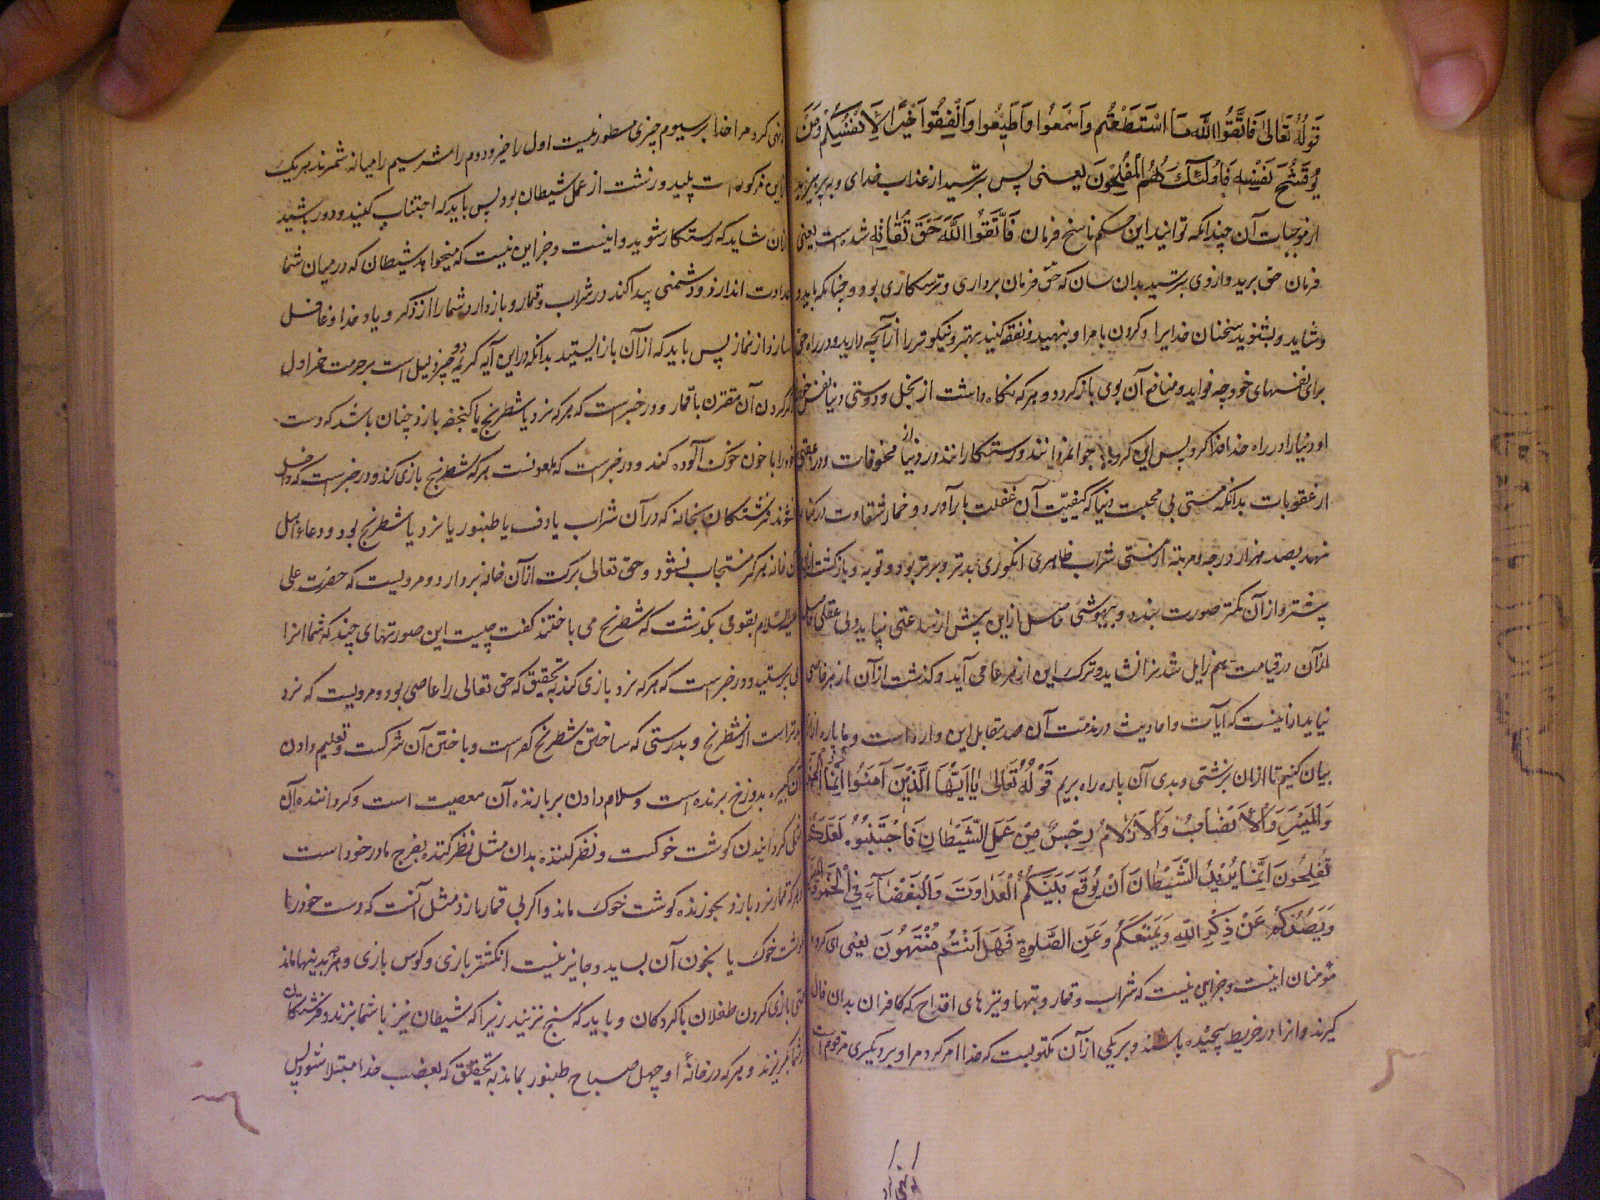 قَولُهُ تَعَالیٰ فَاتَّقُوا اللّٰهَ مَا اسْتَطَعْتُم وَاسْمَعُوا وَاَطِیْعُوا وَاَنْفِقُوا خَیْرًا لِاَنْفُسِکُمْ وَمَنْ
یُوْقَ شُحَّ نَفْسِهٖ فَاُولٰئِکَ هُمُ الْمُفْلِحُوْنَ یعنی پس بترسید از عذاب خدای و بپرهیزید
از موجبات آن چندانکه توانید این حکم ناسخ فرمان فَاتَّقُوا اللّٰهَ حَقَّ تُقَاتِهٖ شده است یعنی
فرمان حق برید و از وی بترسید بدان سان که حق فرمان برداری و ترسکاری بود و چنانکه باید و
و شاید و بشنوید سخنان خدایرا و نفقه کنید بهتر و نیکوتر را از آنچه دارید در راه حق
برای نفسهای خود چه فواید و منافع آن بوی باز گردد و هر که نگاه داشت از بخل و دوستی دنیا نفس خود
او دنیا را در راه خدا فدا کرد پس این گروه جوانمردانند و رستکارانند در دنیا از مخوفات و در عقبی
از عقوبات بدانکه مستی بی محبت دنیا که کیفیت آن غفلت بار آورد و خمار شقاوت در کنار
نهد بصد هزار درجه و مرتبه از مستی شراب ظاهری انگوری بدتر و برتر بود و توبه و بازگشت ازان
بیشتر و از آن کمتر صورت بندد و بیهوشی حاصل ازین پیش از ساعتی نپاید ولی عقلی حاصل
از آن در قیامت هم زایل شدنرا نشاید و ترک این از هر عامی آید و گذشت از آن از هر خاصی
نیاید ازینست که آیات و احادیث در مذمت آن صد مقابل این وارد است و ما پاره ازان
بیان کنیم تا ازان بزشتی و بدی آن پاره راه بریم قَوْلُهُ تَعَالیٰ یٰا اَیُّهَا الَّذِیْنَ آمَنُوا اِنَّمَا الْخَمْرُ
وَالْمَیْسِرُ وَالْاَنْصَابُ وَالْاَزْلَامُ رِجْسٌ مِنْ عَمَلِ الشَّیْطَانِ فَاجْتَنِبُوهُ لَعَلَّکُمْ
تُفْلِحُونَ اِنَّمَا یُرِیْدُ الشَّیْطَانُ اَنْ یُوْقِعَ بَیْنَکُمُ الْعَدَاوَةَ وَالْبَغْضَآءَ فِی الْخَمْرِ وَالْمَیْسِرِ
وَیَصُدَّکُمْ عَنْ ذِکْرِ اللّٰهِ وَیَمْنَعَکُمْ وَعَنِ الصَّلٰوةِ فَهَلْ اَنْتُمْ مُنْتَهُونَ یعنی ای گروه
مؤمنان اینست و جز این نیست که شراب و قمار و بتها و تیرهای اقداح که کافران بدان فال
گیرند و از ادر خریط پیچیده باشند و بر یکی از آن مکتوبست که خدا امر کرد مرا و بر دیگری مرقوم است
نهی کرد مرا خدا بر سیوم چیزی مسطور نیست اول را خیر و دوم را شر سیم را میانه شمرند هر یک
ازین مذکورات پلید و زشت از عمل شیطان بود پس باید که اجتناب کنید و دور باشید
ازان شاید که رستکار شوید و اینست و جز این نیست که میخواهد شیطان که در میان شما
عداوت اندازد و دشمنی پیدا کند در شراب و قمار و باز دارد شما را از ذکر و یاد خدا و غافل
سازد از نماز پس باید که از آن باز ایستید بدانکه در این آیه کریمه دو چیز دلیل است بر حرمت خمر اول
ذکر کردن آن مقترن با قمار و در خبر است که هر که نرد یا شطرنج یا گنجفه بازد چنان باشد که دست
خود را با خون خوک آلوده کند و در خبرست که ملعونست هر که شطرنج بازی کند و در خبر است که داخل
نشوند فرشتگان بخانه که در آن شراب یا دف یا طنبور یا نرد یا شطرنج بود و دعاء اهل
آن خانه هرگز مستجاب نشود و حق تعالی برکت از آن خانه بردارد و مرویست که حضرت علی
علیه السلام بقومی بگذشت که شطرنج می باختند گفت چیست این صورتهای چند که شما انرا
می پرستید و در خبر است که هر که نرد بازی کند بتحقیق که حق تعالی را عاصی بود و مرویست که نرد
بدتر است از شطرنج و بدرستی که ساختن شطرنج کفر است و باختن آن شرکست و تعلیم دادن
آن کبیره بدوزخ برنده است و سلام دادن بر بازنده آن معصیت است و گرداننده آن
مثل گردانیدن گوشت خوکست و نظر کننده بدان مثل نظر کننده بفرج مادر خود است
و هر که قمار نرد بازد بخورنده گوشت خوک ماند و اگر بی قمار بازد مثل آنست که دست خود را
بگوشت خوک یا بخون آن بساید و جایز نیست انگشتر بازی و کوس بازی و هر چه بدینها ماند
حتی بازی کردن طفلان با گردکان و باید که سنج نزنید زیرا که شیطان نیز با شما بزند و فرشتگان
از شما بگریزند و هر که در خانهٔ او چهل صباح طنبور بماند بتحقیق که بغضب خدا مبتلا شود پس